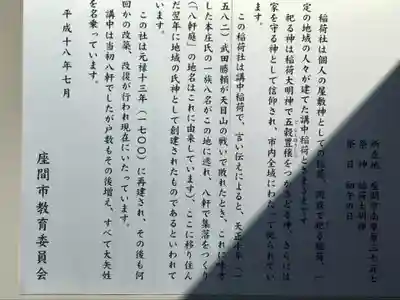 所在地　座間市南栗原
祭神　稲荷大明神
祭日　初午の日
稲荷社は個人の屋敷神として
定の地域の人々が建てた講中稲荷と
祀る神は稲荷大明神で五穀豊穣をつかさどる神、さらには
家を守る神として信仰され、市内全域にわたって祀られてい
ます。
この稲荷社は講中稲荷で、言い伝えによると、天正十年（一
五八二）武田勝頼が天目山の戦いで敗れたとき、これに
した本庄氏の一族八名がこの地に逃れ、八軒で集落をつくり
（「八軒庭」の地名はこれに由来しています）、ここに移り住ん
だ翌年に地域の氏神として創建されたものであるといわれて
います。
この社は元禄十三年（一七〇〇）に再建され、その後も何
回かの改築、改復が行われ現在にいたっています。
講中は当初八軒でしたが戸数もその後増え、すべて大矢姓
を名乗っています。
平成十八年七月
座間市教育委員会